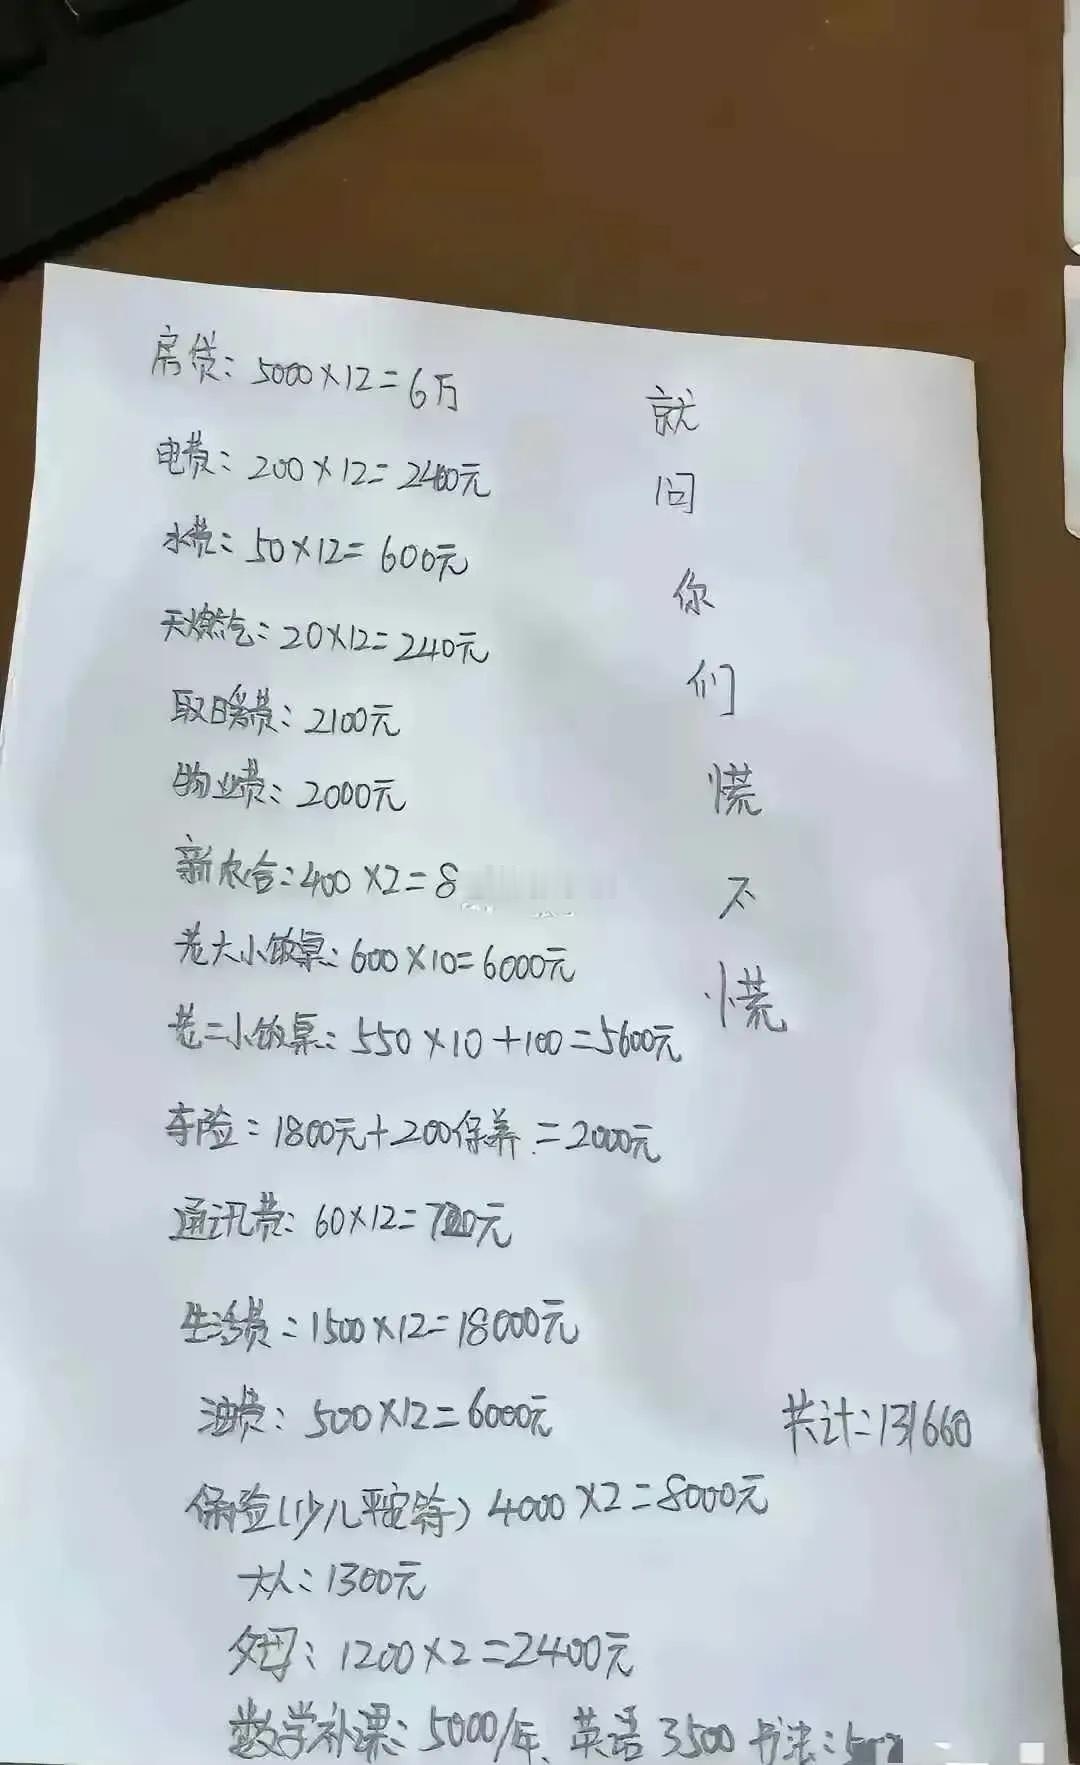 房贷：5000×12=6万
电费：200×12=2400元
水费：50×12=600元
天燃气：20×12=240元
取暖费：2100元
物业费：2000元
新农合：400×2=8
老大小饭桌：600×10=6000元
老二小饭桌：550×10+100=5600元
车险：1800元+200保养=2000元
通讯费：60×12=720元
生活费：1500×12=18000元
油费：500×12=6000元
保险(少儿平安等)4000×2=8000元
大人：1300元
父母：1200×2=2400元
数学补课：5000/年、英语3500 书法：
就问你们慌不慌
共计：131660